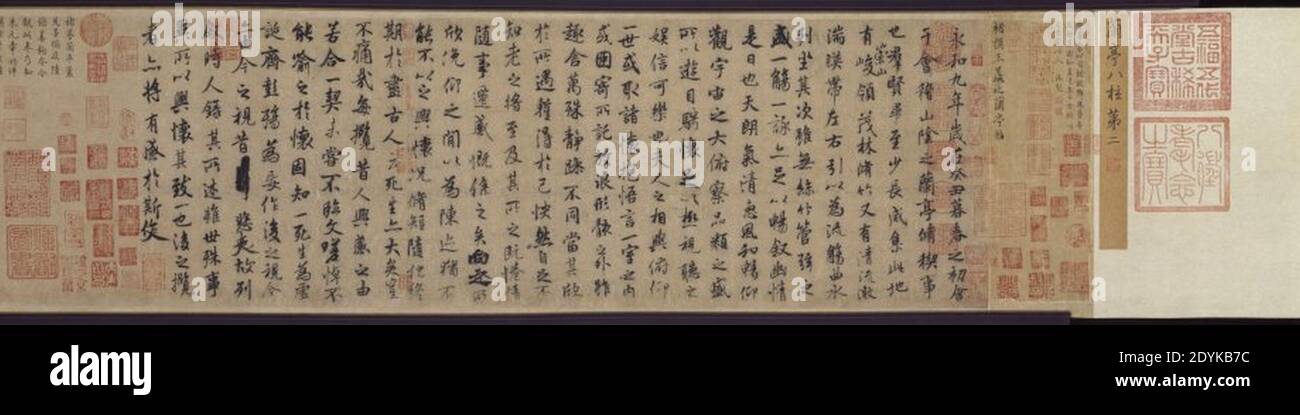 五福五代堂古稀天子寶
八徵耄念之寶
蘭亭八柱第二
褚模王羲之蘭亭帖
永和九年歲在癸丑暮春之初會
于會稽山陰之蘭亭脩稧事
也羣賢畢至少長咸集此地
有崇山峻領茂林脩竹又有清流激
湍暎帶左右引以為流觴曲水
列坐其次雖無絲竹管弦之
盛一觴一詠亦足以暢叙幽情
是日也天朗氣清惠風和暢仰
觀宇宙之大俯察品類之盛
所以遊目騁懷足以極視聽之
娛信可樂也夫人之相與俯仰
一世或取諸懷抱悟言一室之內
或因寄所託放浪形骸之外雖
趣舍萬殊靜躁不同當其欣
於所遇蹔得於己快然自足不
知老之將至及其所之既惓情
隨事遷感慨係之矣向之所
欣俛仰之間以為陳迹猶不
能不以之興懷況脩短隨化終
期於盡古人云死生亦大矣豈
不痛哉每攬昔人興感之由
若合一契未嘗不臨文嗟悼不
能喻之於懷固知一死生為虛
誕齊彭殤為妄作後之視今
亦由今之視昔悲夫故列
敘時人錄其所述雖世殊事
異所以興懷其致一也後之攬
者亦將有感於斯文
alamy
Image ID: 2DYKB7C
www.alamy.com